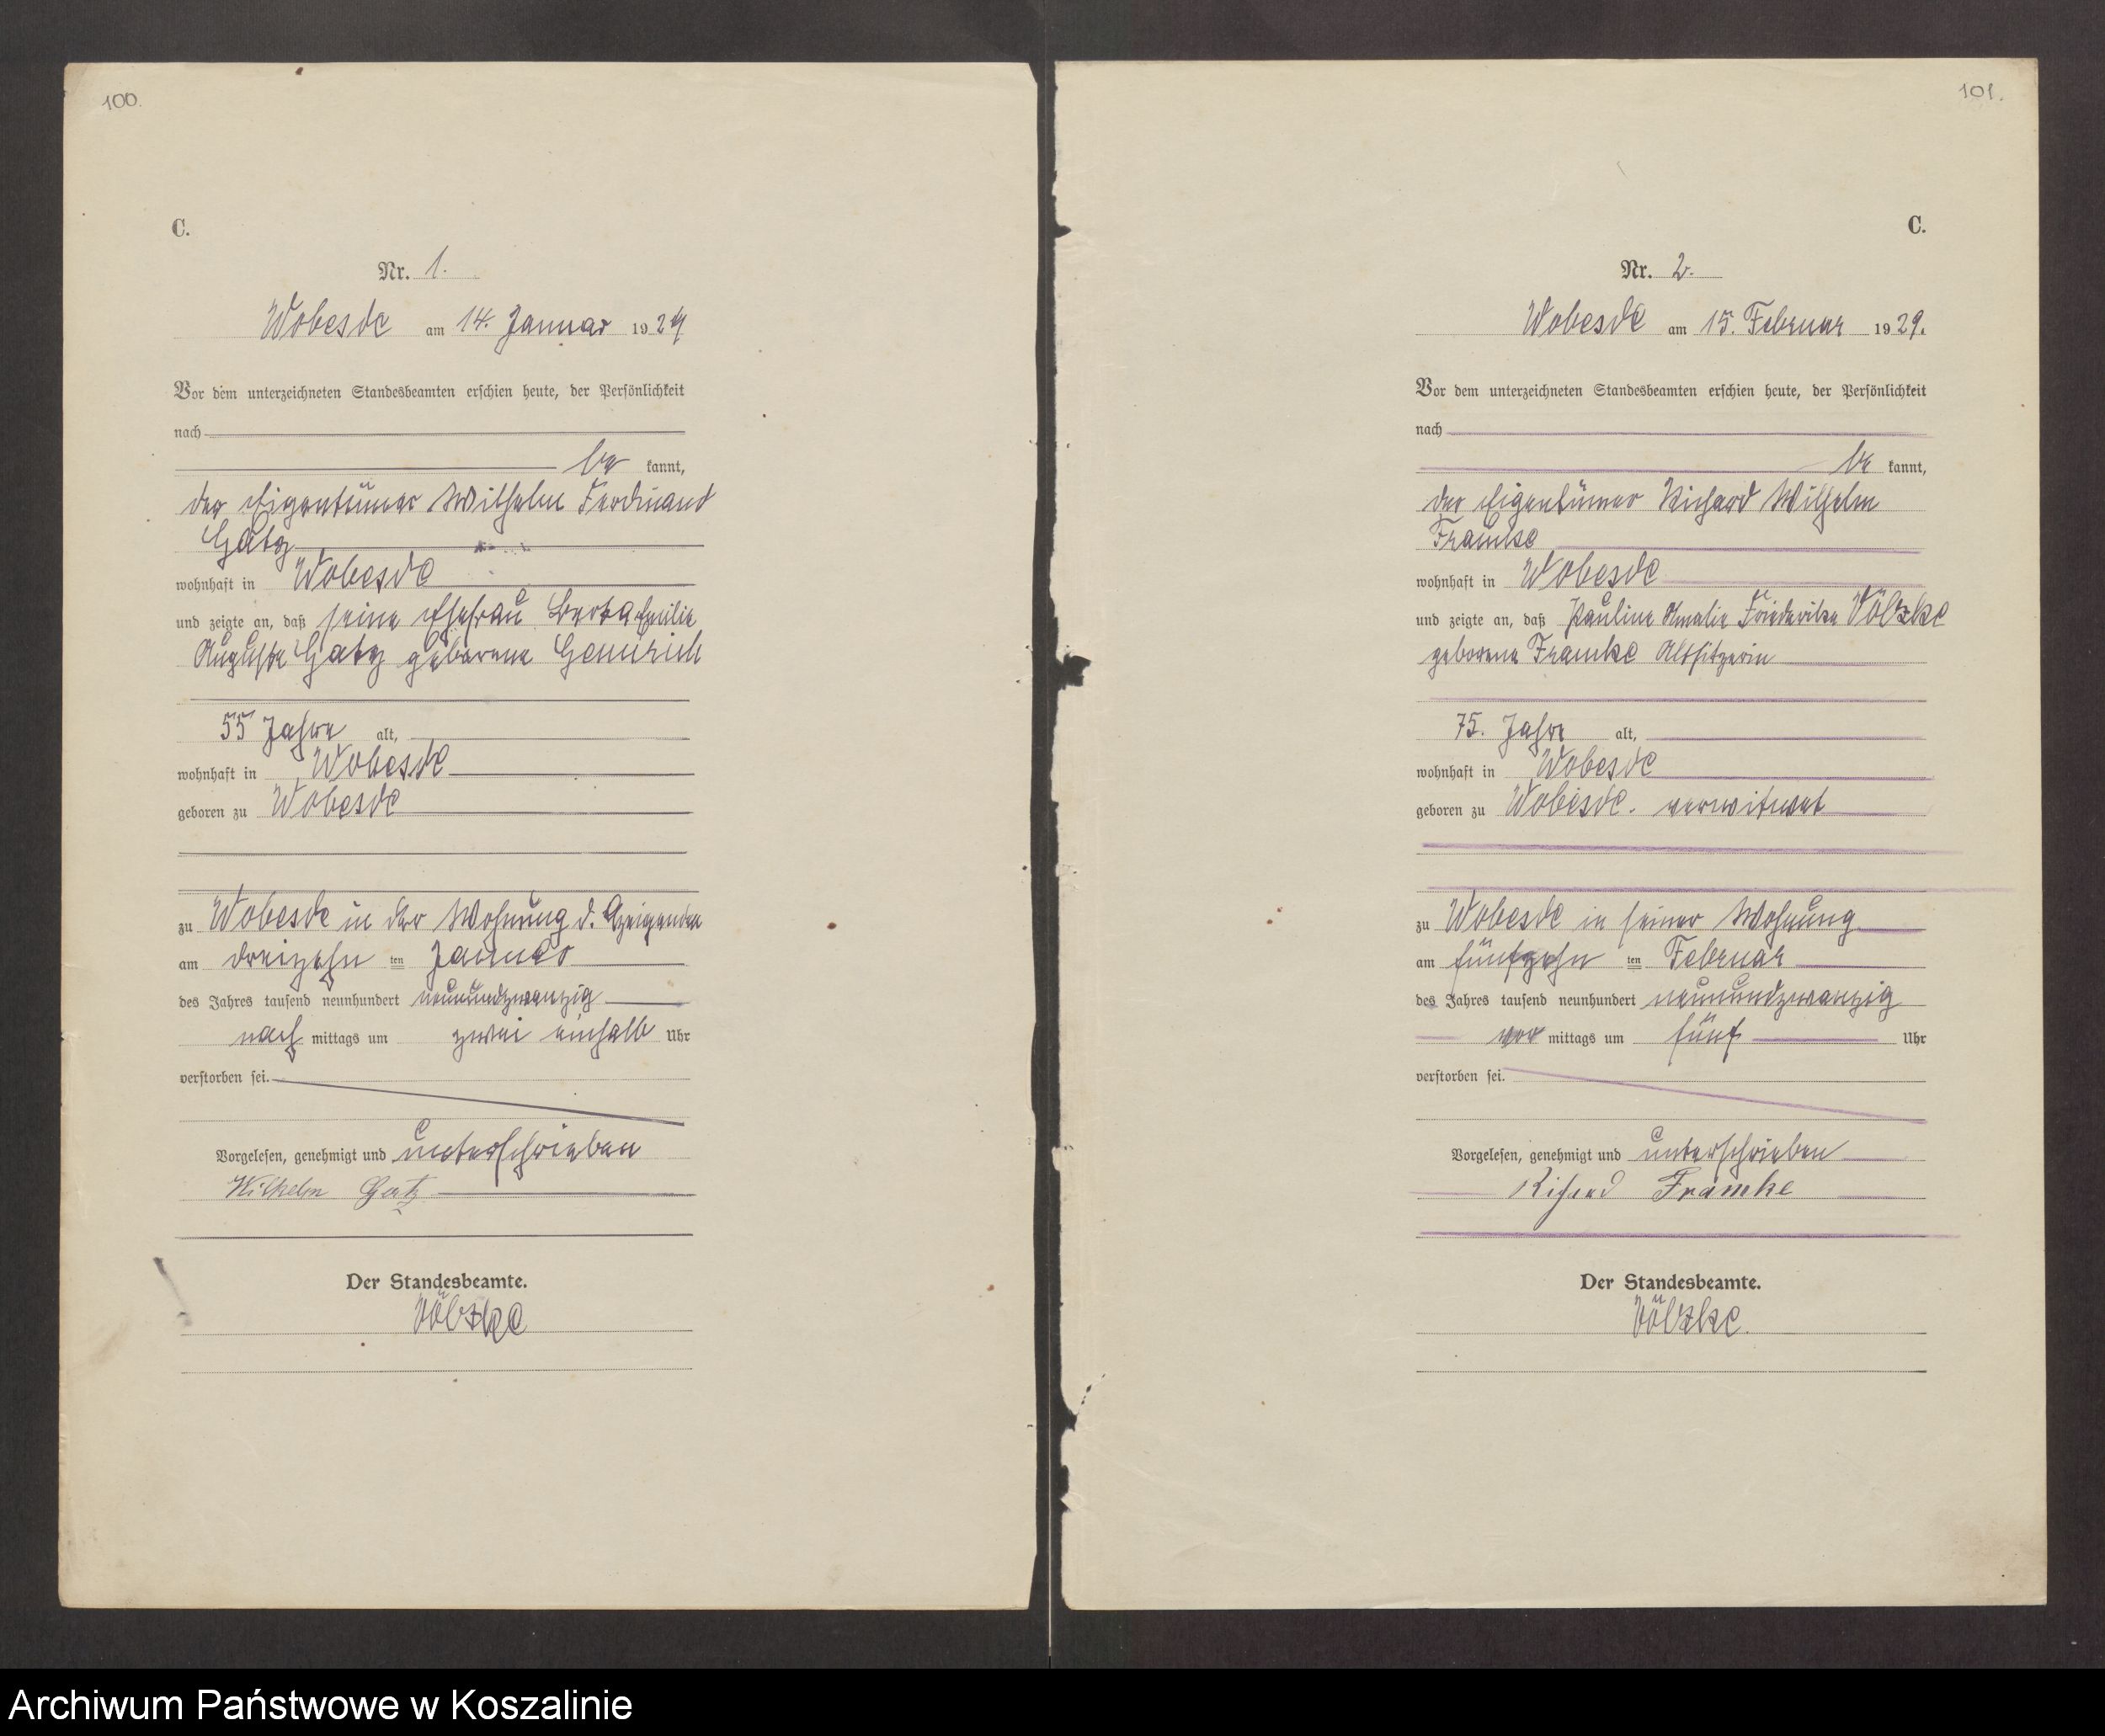 100.
C.
Nr. 1.
Wobesde am 14. Januar 1929
Vor dem unterzeichneten Standesbeamten erschien heute, der Persönlichkeit
nach
be kannt,
der Eigentümer Wilhelm Ferdinand
Gatz
wohnhaft in Wobesde
und zeigte an, daß seine Ehefrau Berta Emilie
Auguste Gatz geborene
55 Jahre alt,
wohnhaft in Wobesde
geboren zu Wobesde
zu Wobesde in der Wohnung d. Anzeigenden
am dreizehn ten Januar
des Jahres tausend neunhundert neunundzwanzig
nach mittags um zwei einhalb Uhr
verstorben sei.
Vorgelesen, genehmigt und unterschrieben
Wilhelm Gatz
Der Standesbeamte.
Völzke
101.
C.
Nr. 2.
Wobesde am 15. Februar 1929.
Vor dem unterzeichneten Standesbeamten erschien heute, der Persönlichkeit
nach
be kannt,
der Eigentümer Richard Wilhelm
Framke
wohnhaft in Wobesde
und zeigte an, daß Pauline Amalie Friederike Völzke
geborene Framke Altsitzerin
75. Jahre alt,
wohnhaft in Wobesde
geboren zu Wobesde. verwitwet
zu Wobesde in seiner Wohnung
am fünfzehn ten Februar
des Jahres tausend neunhundert neunundzwanzig
vor mittags um fünf Uhr
verstorben sei.
Vorgelesen, genehmigt und unterschrieben
Richard Framke
Der Standesbeamte.
Völzke.
Archiwum Państwowe w Koszalinie